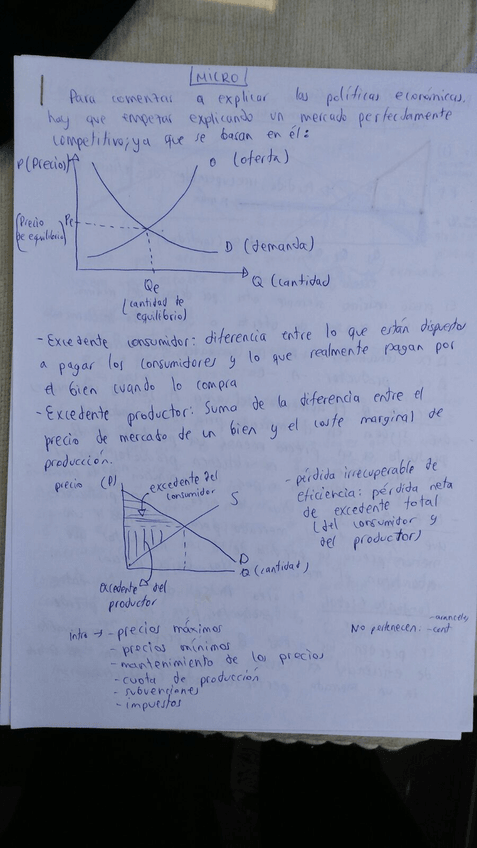 MICRO
Para comentar a explicar las políticas económicas,
hay que empezar explicando un mercado perfectamente
competitivo, ya que se basan en él:
P (Precio)
O (oferta)
(Precio de equilibrio)
Pe
D (demanda)
Q (cantidad)
Qe
(cantidad de
equilibrio)
- Excedente consumidor: diferencia entre lo que están dispuestos
a pagar los consumidores y lo que realmente pagan por
el bien cuando lo compra
- Excedente productor: Suma de la diferencia entre el
precio de mercado de un bien y el coste marginal de
producción.
precio (P)
excedente del
consumidor
S
D
Q (cantidad)
excedente del
productor
- pérdida irrecuperable de
eficiencia: pérdida neta
de excedente total
(del consumidor y
del productor)
Intro → - precios máximos
- precios mínimos
- mantenimiento de los precios
- cuota de producción
- subvenciones
- impuestos
- aranceles
No pertenecen: - cont